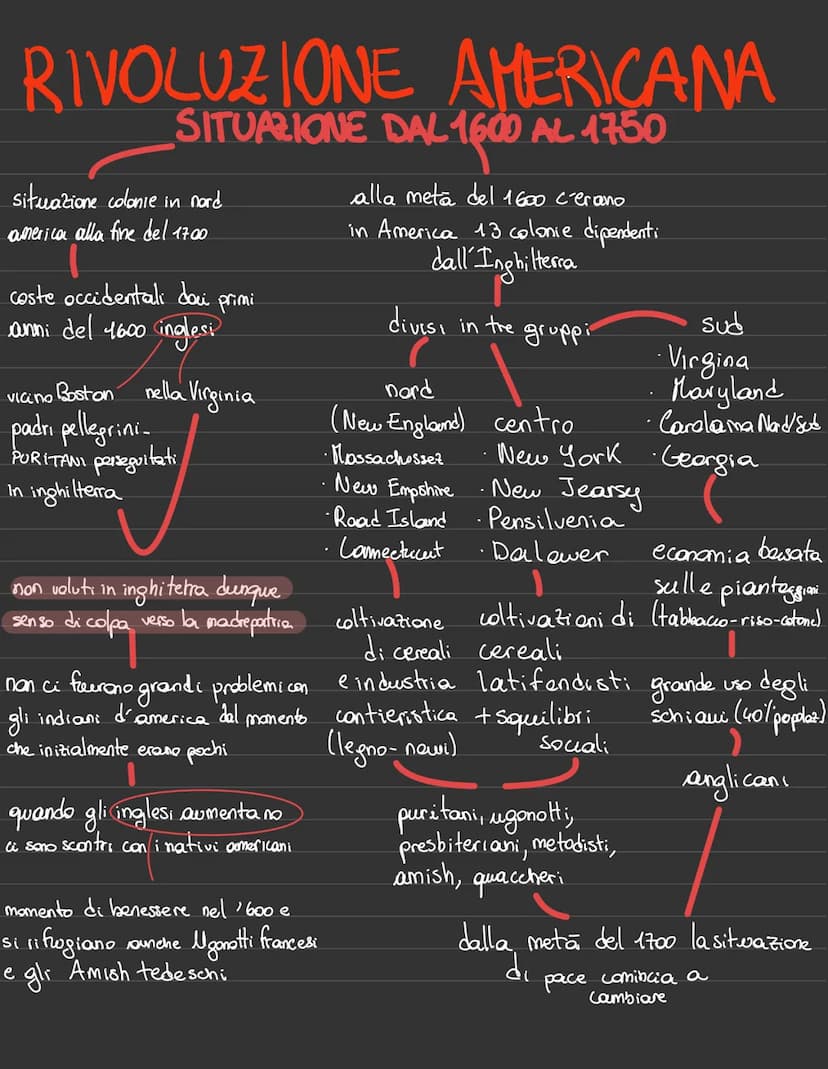 RIVOLUZIONE AMERICANA
SITUAZIONE DAL 1600 AL 1750
situazione colonie in nord
america alla fine del 1700
coste occidentali dai primi
anni del 1600 inglesi
vicino Boston
padri pellegrini-
PURITANI perseguitati
in inghilterra
nella Virginia
non voluti in inghiteltra dunque
senso di colpa verso la madrepatria
non ci furono grandi problemi con
gli indiani d'america dal momento
che initialmente erano pochi
quando gli inglesi aumentano
ci sono scontri con i nativi americani
momento di benessere nel '600 e
si rifugiano anche Ugonotti francesi
e gli Amish tedeschi
alla metà del 1600 c'erano
in America 13 colonie dipendenti
dall'Inghilterra
divisi in tre gruppi
nord
(New England)
· Massachossez
· New Empshire
· Road Island
· Connecticut
coltivazione
di cereali
e industria
cantieristica
(legno-navi)
centro
· New York
· New Jearsy
· Pensilvenia
· Dalawer
coltivazioni di
cereali
latifondisti
+ squilibri
sociali
puritani, ugonotti,
presbiteriani, metodisti,
amish, quaccheri
sud
· Virgina
· Maryland
· Carolaina Nord/Sud
· Georgia
economia basata
sulle piantaggioni
(tabbacco-riso-cotone)
grande uso degli
schiavi (40% popolaz.)
anglicani
dalla metà del 1700 la situazione
di pace comincia a
cambiare